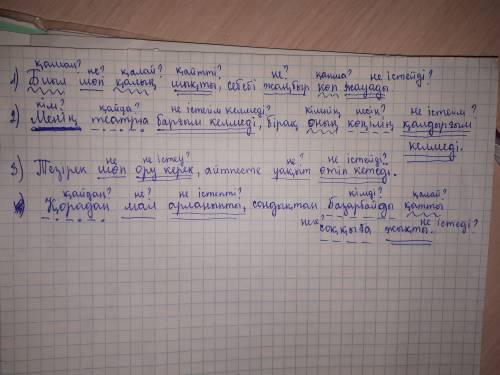 қашан? не? қалай? қайтті? не? қанша? не істейді?
1) Биыл шөп қалың шықты, себебі жаңбыр көп жауады
кім? қайда? не істейім келмеді? кімнің несін? не істейім?
2) Менің театрға барғым келмеді, бірақ оның көңілін қалдырғым
келмеді.
не не істеу? не? не істейді?
3) Тезірек шөп ору керек, әйтпесе уақыт өтіп кетеді.
қайдан? не? не істепті? кімді? қалай?
Қорадан мал қолды, сондықтан базарбайды қатты
не істеді?
соққыға жықты.